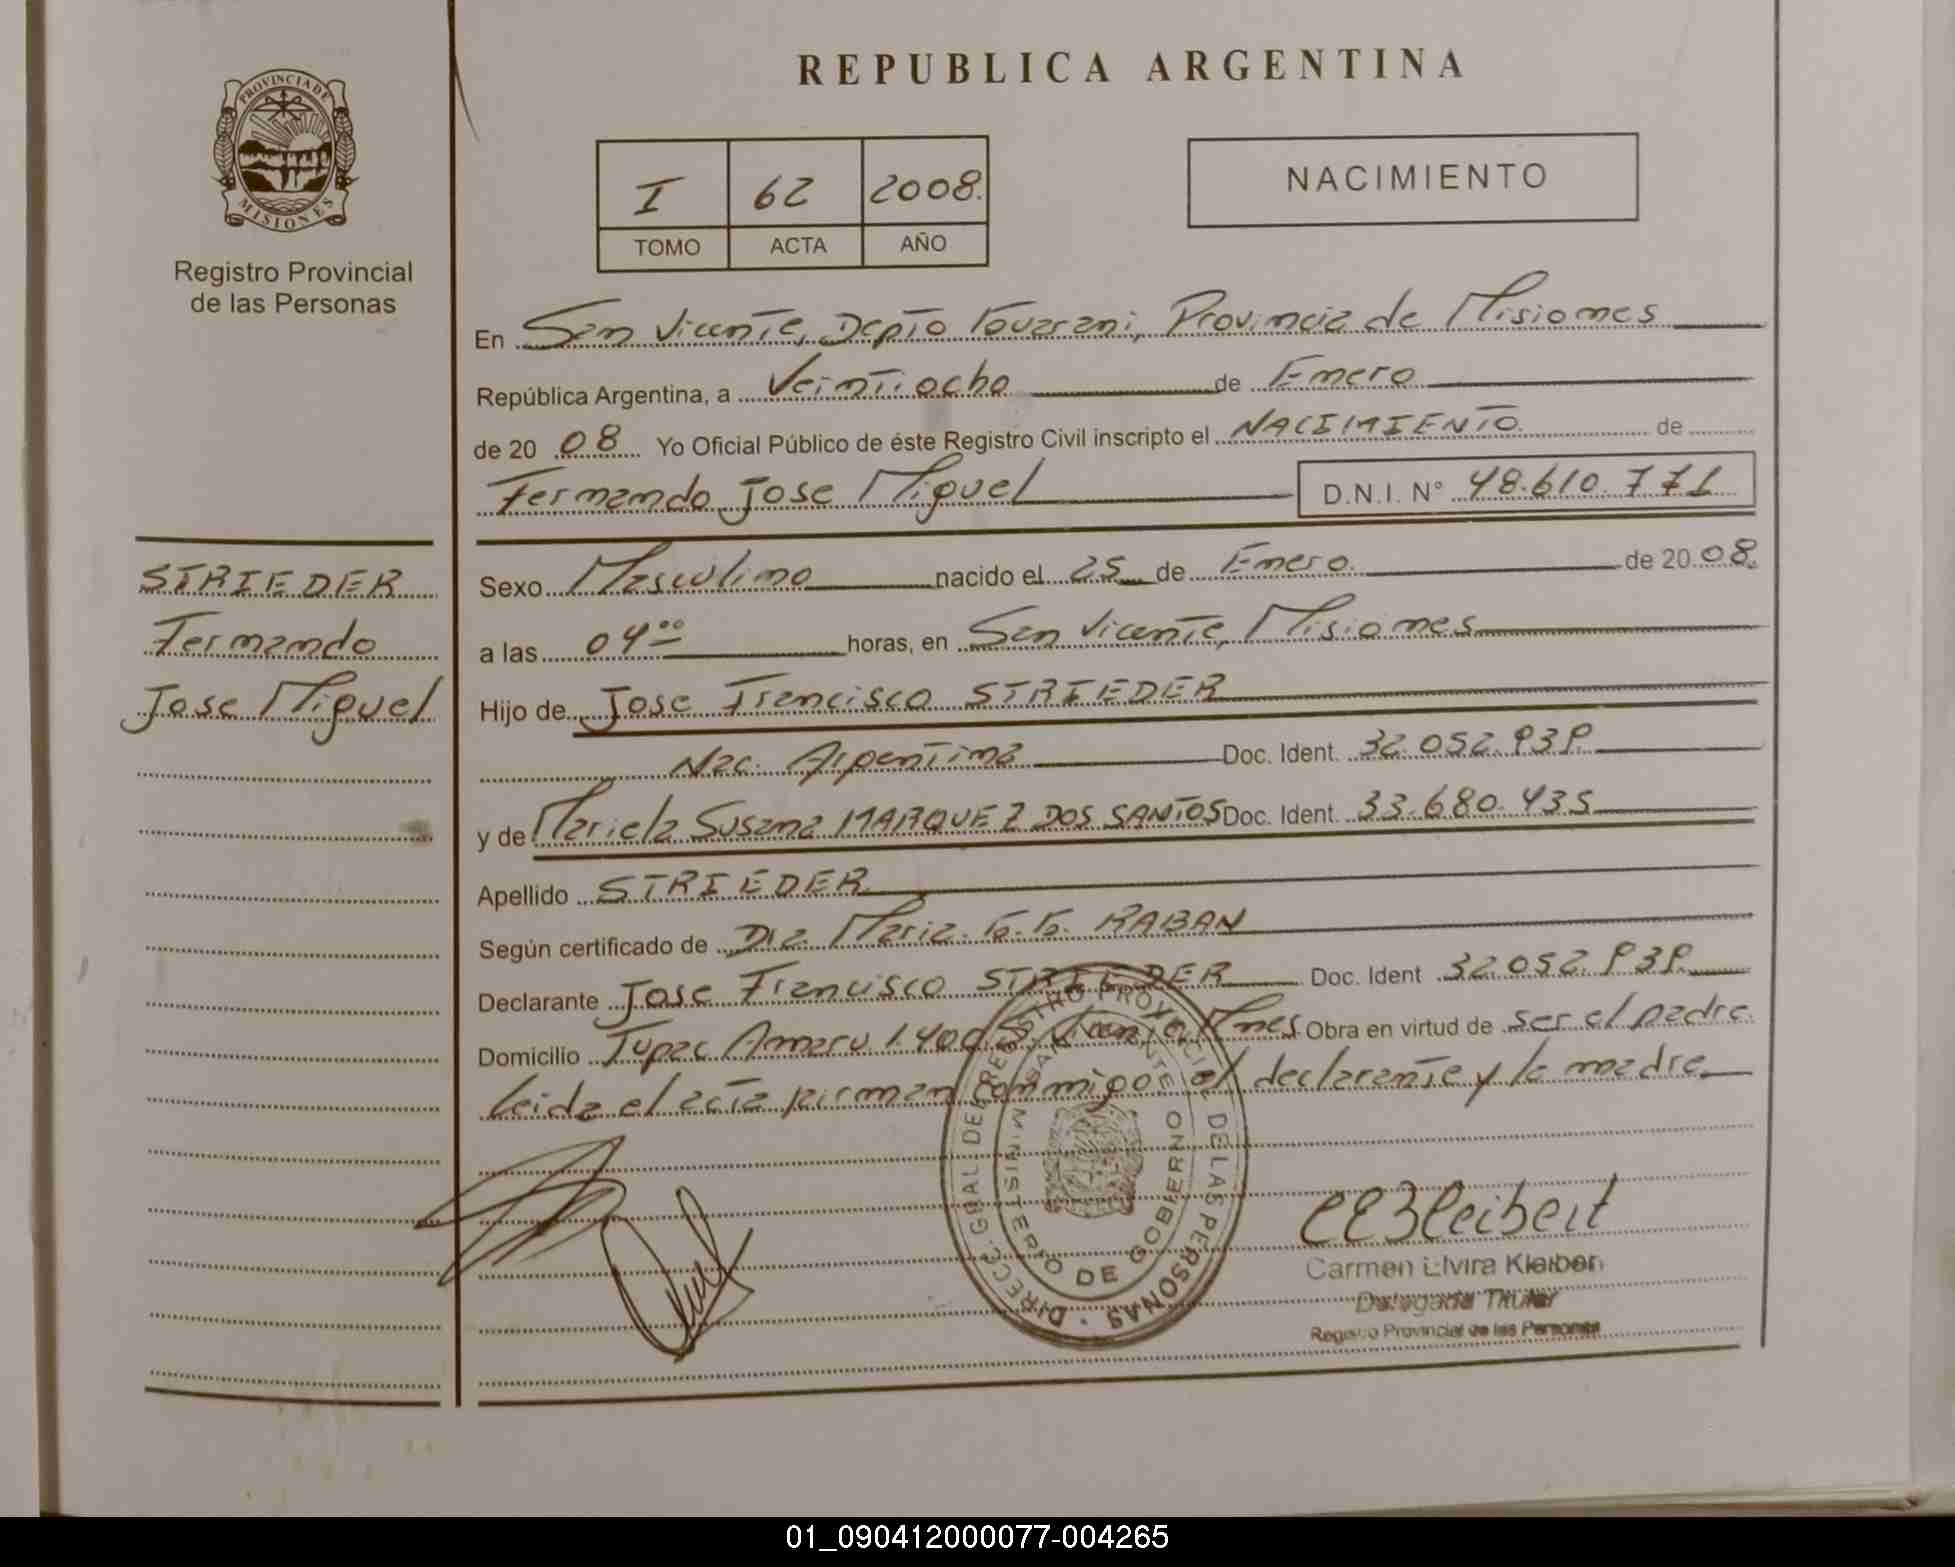 REPUBLICA ARGENTINA
PROVINCIA DE
MISIONES
Registro Provincial
de las Personas
I 62 2008.
TOMO ACTA AÑO
NACIMIENTO
En San Vicente, Depto Guarani, Provincia de Misiones
República Argentina, a Veintiocho de Enero
de 20 08 Yo Oficial Público de éste Registro Civil inscripto el NACIMIENTO de
Fernando Jose Miguel D.N.I. N° 48.610.771
STRIEDER
Fernando
Jose Miguel
Sexo Masculino nacido el 25 de Enero de 20 08.
a las 04⁰⁰ horas, en San Vicente, Misiones
Hijo de Jose Francisco STRIEDER
Nac. Argentina Doc. Ident. 32.052.939
y de Mariela Susana MARQUEZ DOS SANTOS Doc. Ident. 33.680.435
Apellido STRIEDER
Según certificado de Dra. Maria G. G. RABAN
Declarante Jose Francisco STRIEDER Doc. Ident 32.052.939
Domicilio Tupac Amaru 1.400 S. Vicente, Mnes Obra en virtud de ser el padre.
Leida el acta firman conmigo el declarante y la madre
DIRECC. GRAL DE REGISTRO PROVINCIAL DE LAS PERSONAS
SAN VICENTE
MINISTERIO DE GOBIERNO
CEKleibert
Carmen Elvira Kleiben
Delegada Titular
Registro Provincial de las Personas
01_090412000077-004265